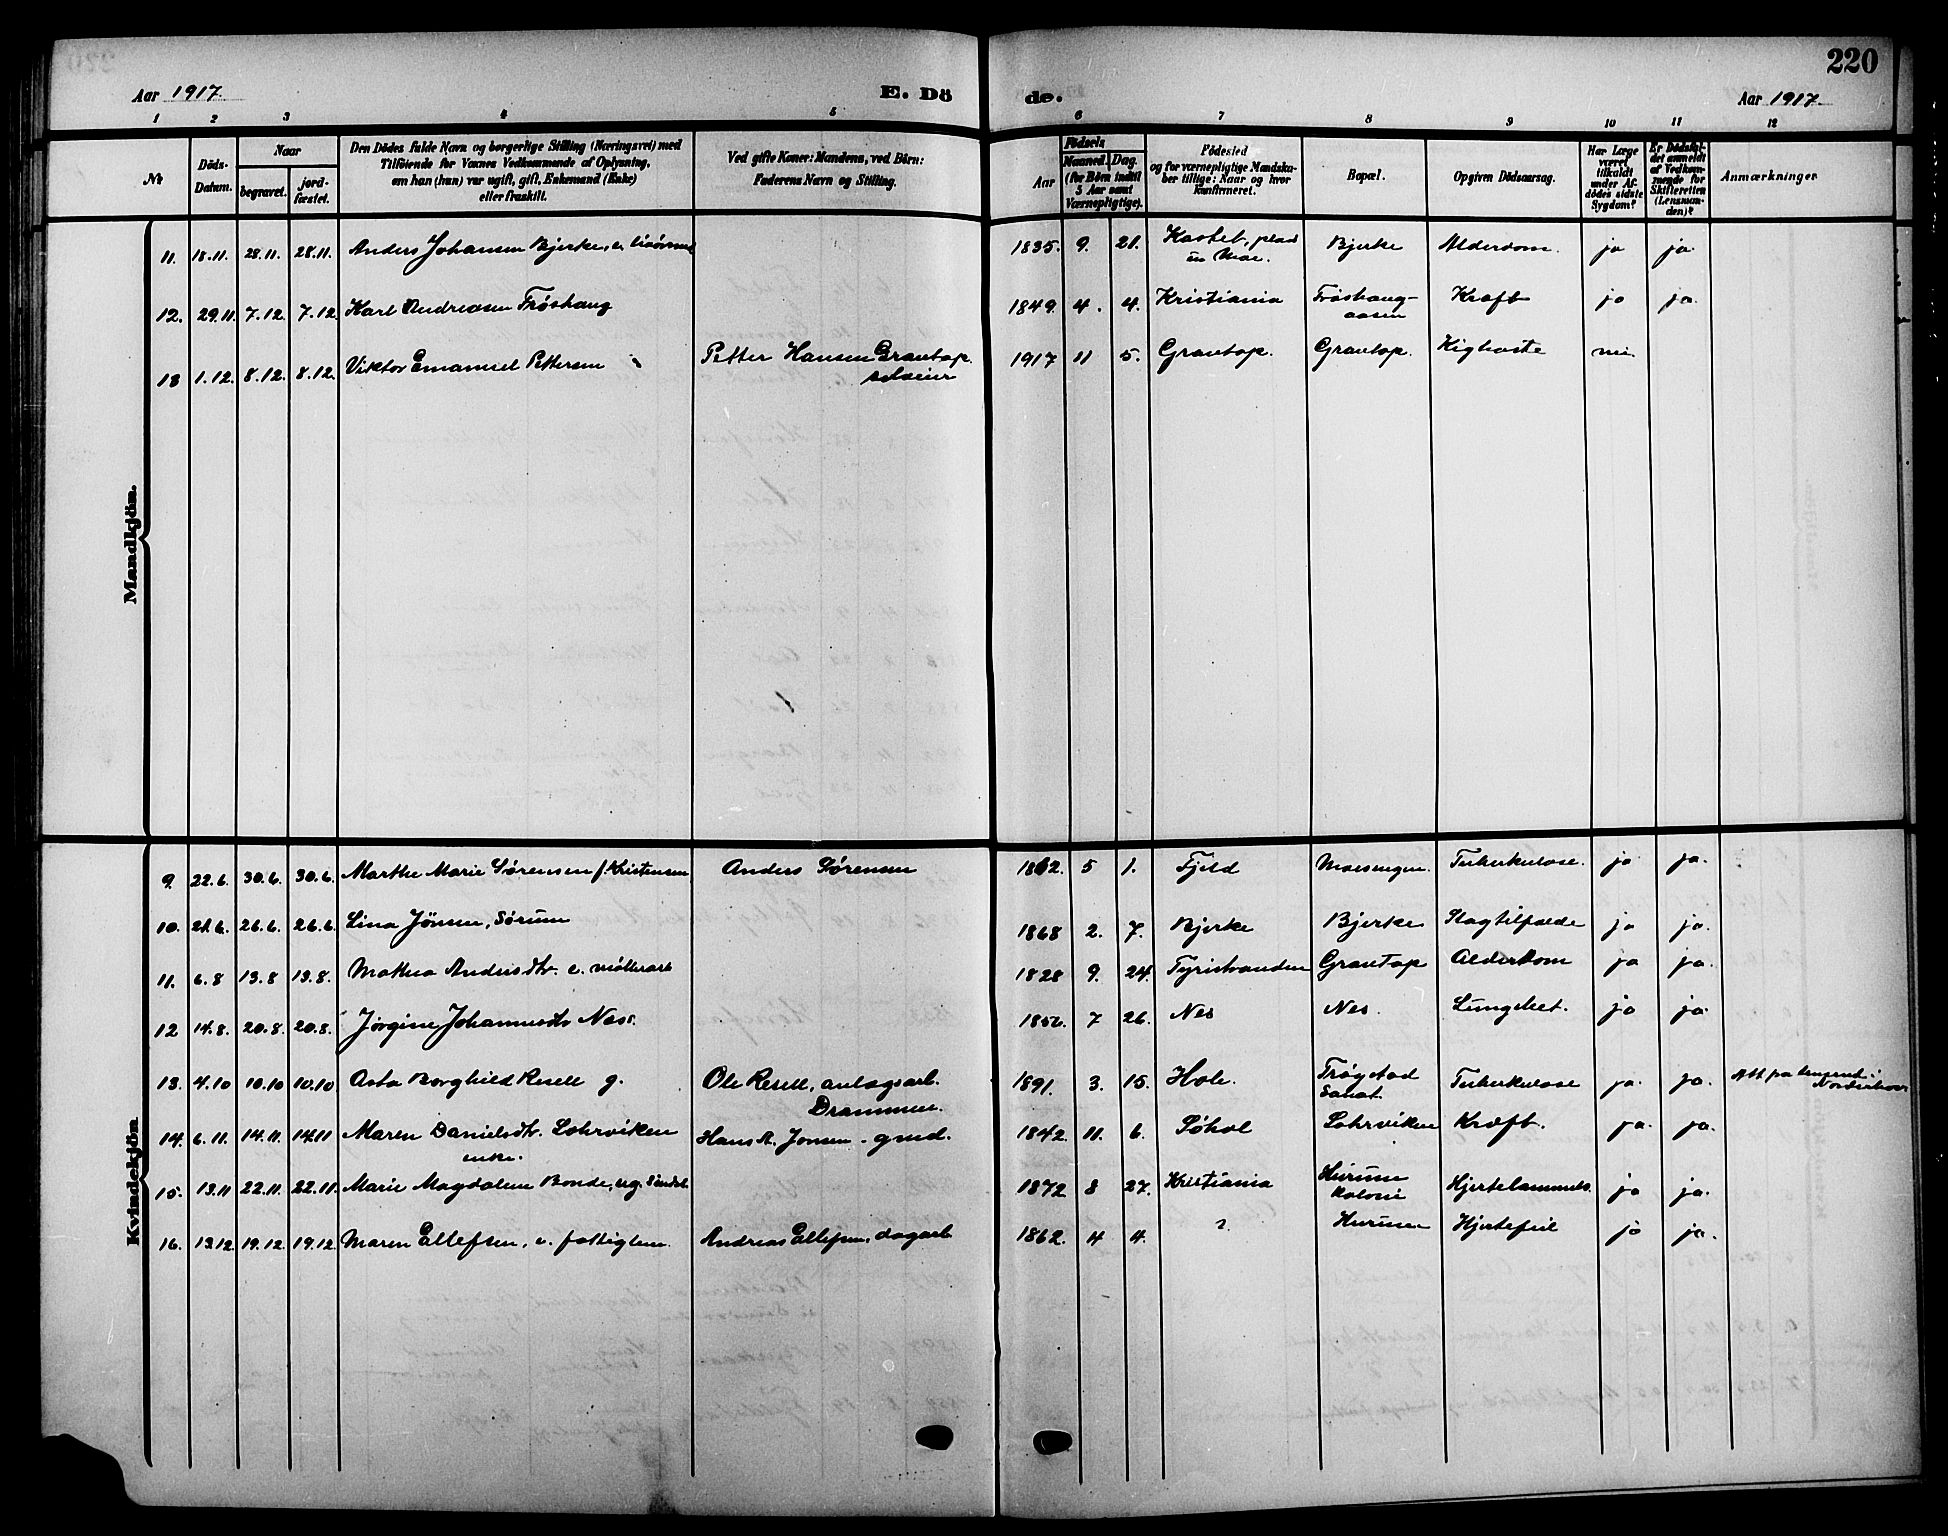 220
Aar 1917. E. Dö de. Aar 1917.
1 2 3 4 5 6 7 8 9 10 11 12
Nr
Döds-
Datum.
Naar
begravet.
jord-
fæstet.
Den Dödes fulde Navn og borgerlige Stilling (Næringsvei) med
Tilföiende for Voxnes Vedkommende af Oplysning,
om han (hun) var ugift, gift, Enkemand (Enke)
eller fraskilt.
Ved gifte Koner: Mandens, ved Börn:
Faderens Navn og Stilling.
Födsels
Aar
Maaned.
Dag.
(for Börn indtil
5 Aar samt
Værnepligtige).
Födested
og for værnepligtige Mandska-
ber tillige: Naar og hvor
konfirmeret.
Bopæl.
Opgiven Dödsaarsag.
Har Læge
været
tilkaldt
under Af-
dödes sidste
Sygdom?
Er Dödsfal-
det anmeldt
af Vedkom-
mende for
Skifteretten
(Lensman-
den)?
Anmærkninger
Mandkjön.
11. 18.11. 28.11. 28.11. Anders Johansen Bjerke, 1835. 9. 21. Bjerke Alderdom. ja ja
12. 29.11. 7.12. 7.12. Karl Andreasen Frøshaug 1849. 4. 4. Kristiania Frøshaug-
aasen Kræft ja ja.
13 1.12. 8.12. 8.12. Viktor Emanuel Pettersen Petter Hansen Grantop.
selveier 1917 11 5. Grantop. Grantop. Kighoste nei.
Kvindekjön
9. 22.6. 30.6. 30.6. Marthe Marie Sørensen f. Kristensen Anders Sørensen 1862. 5 1. Fjeld Moesengen. Tuberkulose. ja ja.
10. 21.6. 26.6. 26.6. Lina Jönsen, Sørum 1868 2. 7. Bjerke Bjerke Slagtilfælde ja ja.
11. 6.8 13.8 13.8. Mathea Andersdtr. e. møllerarb 1828 9. 24. Tyristranden Grantop Alderdom ja ja.
12 14.8. 20.8. 20.8. Jørgine Johannesdtr Næss. 1856. 7 26. Nes Nes. Lungebet. ja ja.
13. 4.10 10.10 10.10 Asta Borghild Resell g. Ole Resell, anlægsarb.
Drammen. 1891. 3. 15. Hole. Trøgstad
Sanat. Tuberkulose ja. ja.
14. 6.11. 14.11. 14.11 Maren Danielsdtr. Lohrviken
enke. Hans A. Jonsen - grud. 1842. 11. 6. Søhol Lohrviken Kræft. ja. ja.
15. 13.11 22.11. 22.11. Marie Magdalene Bonde, ug. 1872 8 27. Kristiania Hurum
koloni Hjertelammels. ja ja.
16. 13.12 19.12 19.12 Maren Ellefsen, e. fattiglem. Andreas Ellefsen, dagarb 1862. 4 4. ? Hurum Hjertefeil ja ja.